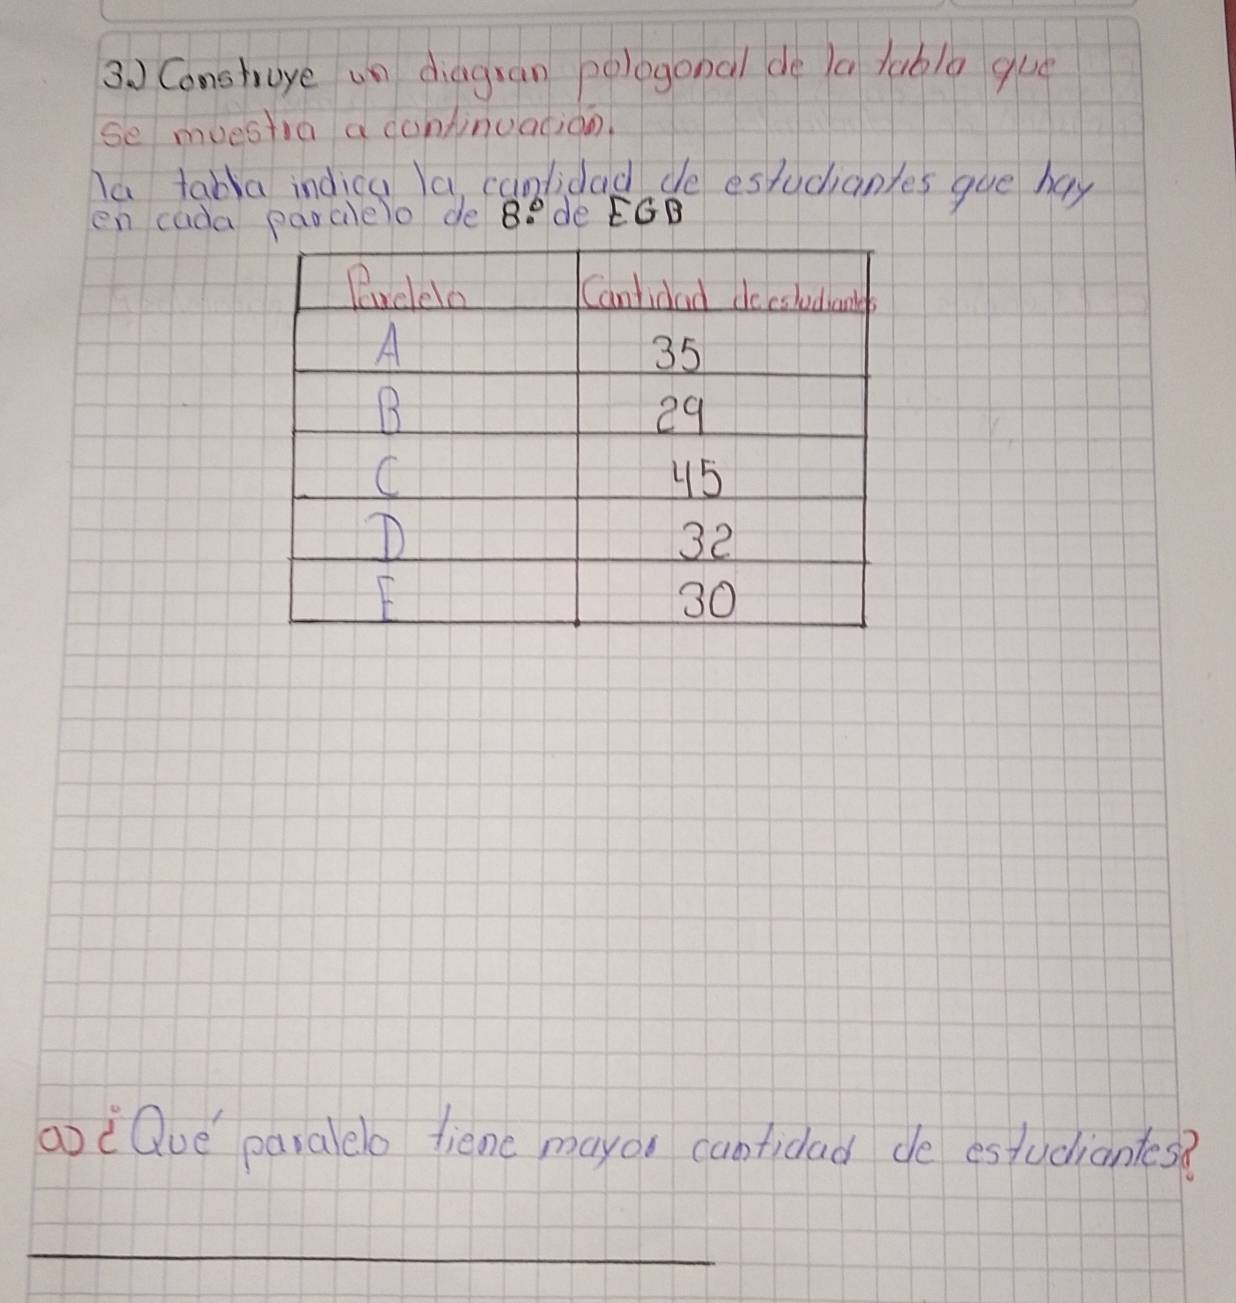 3.) Construye un diagran pologonal de la tabla que
se muestra a continuación.
la tabla indica la cantidad de estudiantes que hay
en cada paralelo de 8º de EGB
Paralelo Cantidad de estudiantes
A 35
B 29
C 45
D 32
E 30
a) ¿Qué paralelo tiene mayor cantidad de estudiantes?